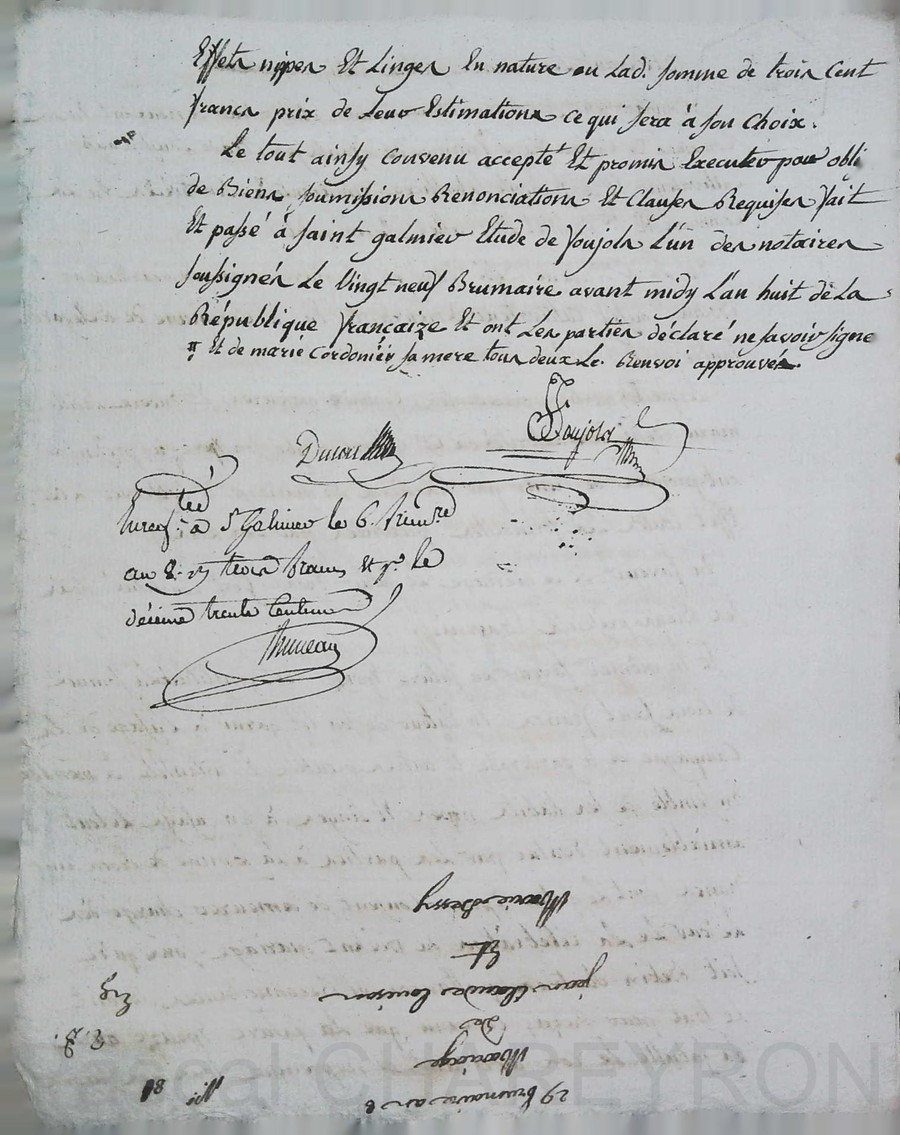 Effets nippes Et Linges En nature ou Lad. somme de trois Cent
francs prix de leur Estimations ce qui sera à son Choix.
Le tout ainsy convenu accepté Et promis Executer pour obli
de Biens soumissions Renonciations Et Clauses Requises fait
Et passé à saint galmier Etude de Soujols L'un des notaires
soussignés Le Vingt neuf Brumaire avant midy L'an huit de La
République francaize Et ont Les parties déclaré ne savoir signe
# Et de marie Cordoniéy sa mere tous deux Le Renvoi approuvés
Soujols
Enreg. à St Galmier le 6. frim.re
an 8. trois francs le
décime trente Centimes
29 brumaire an 8
Mariage
de
jean Claude
Et
Marie
Eng